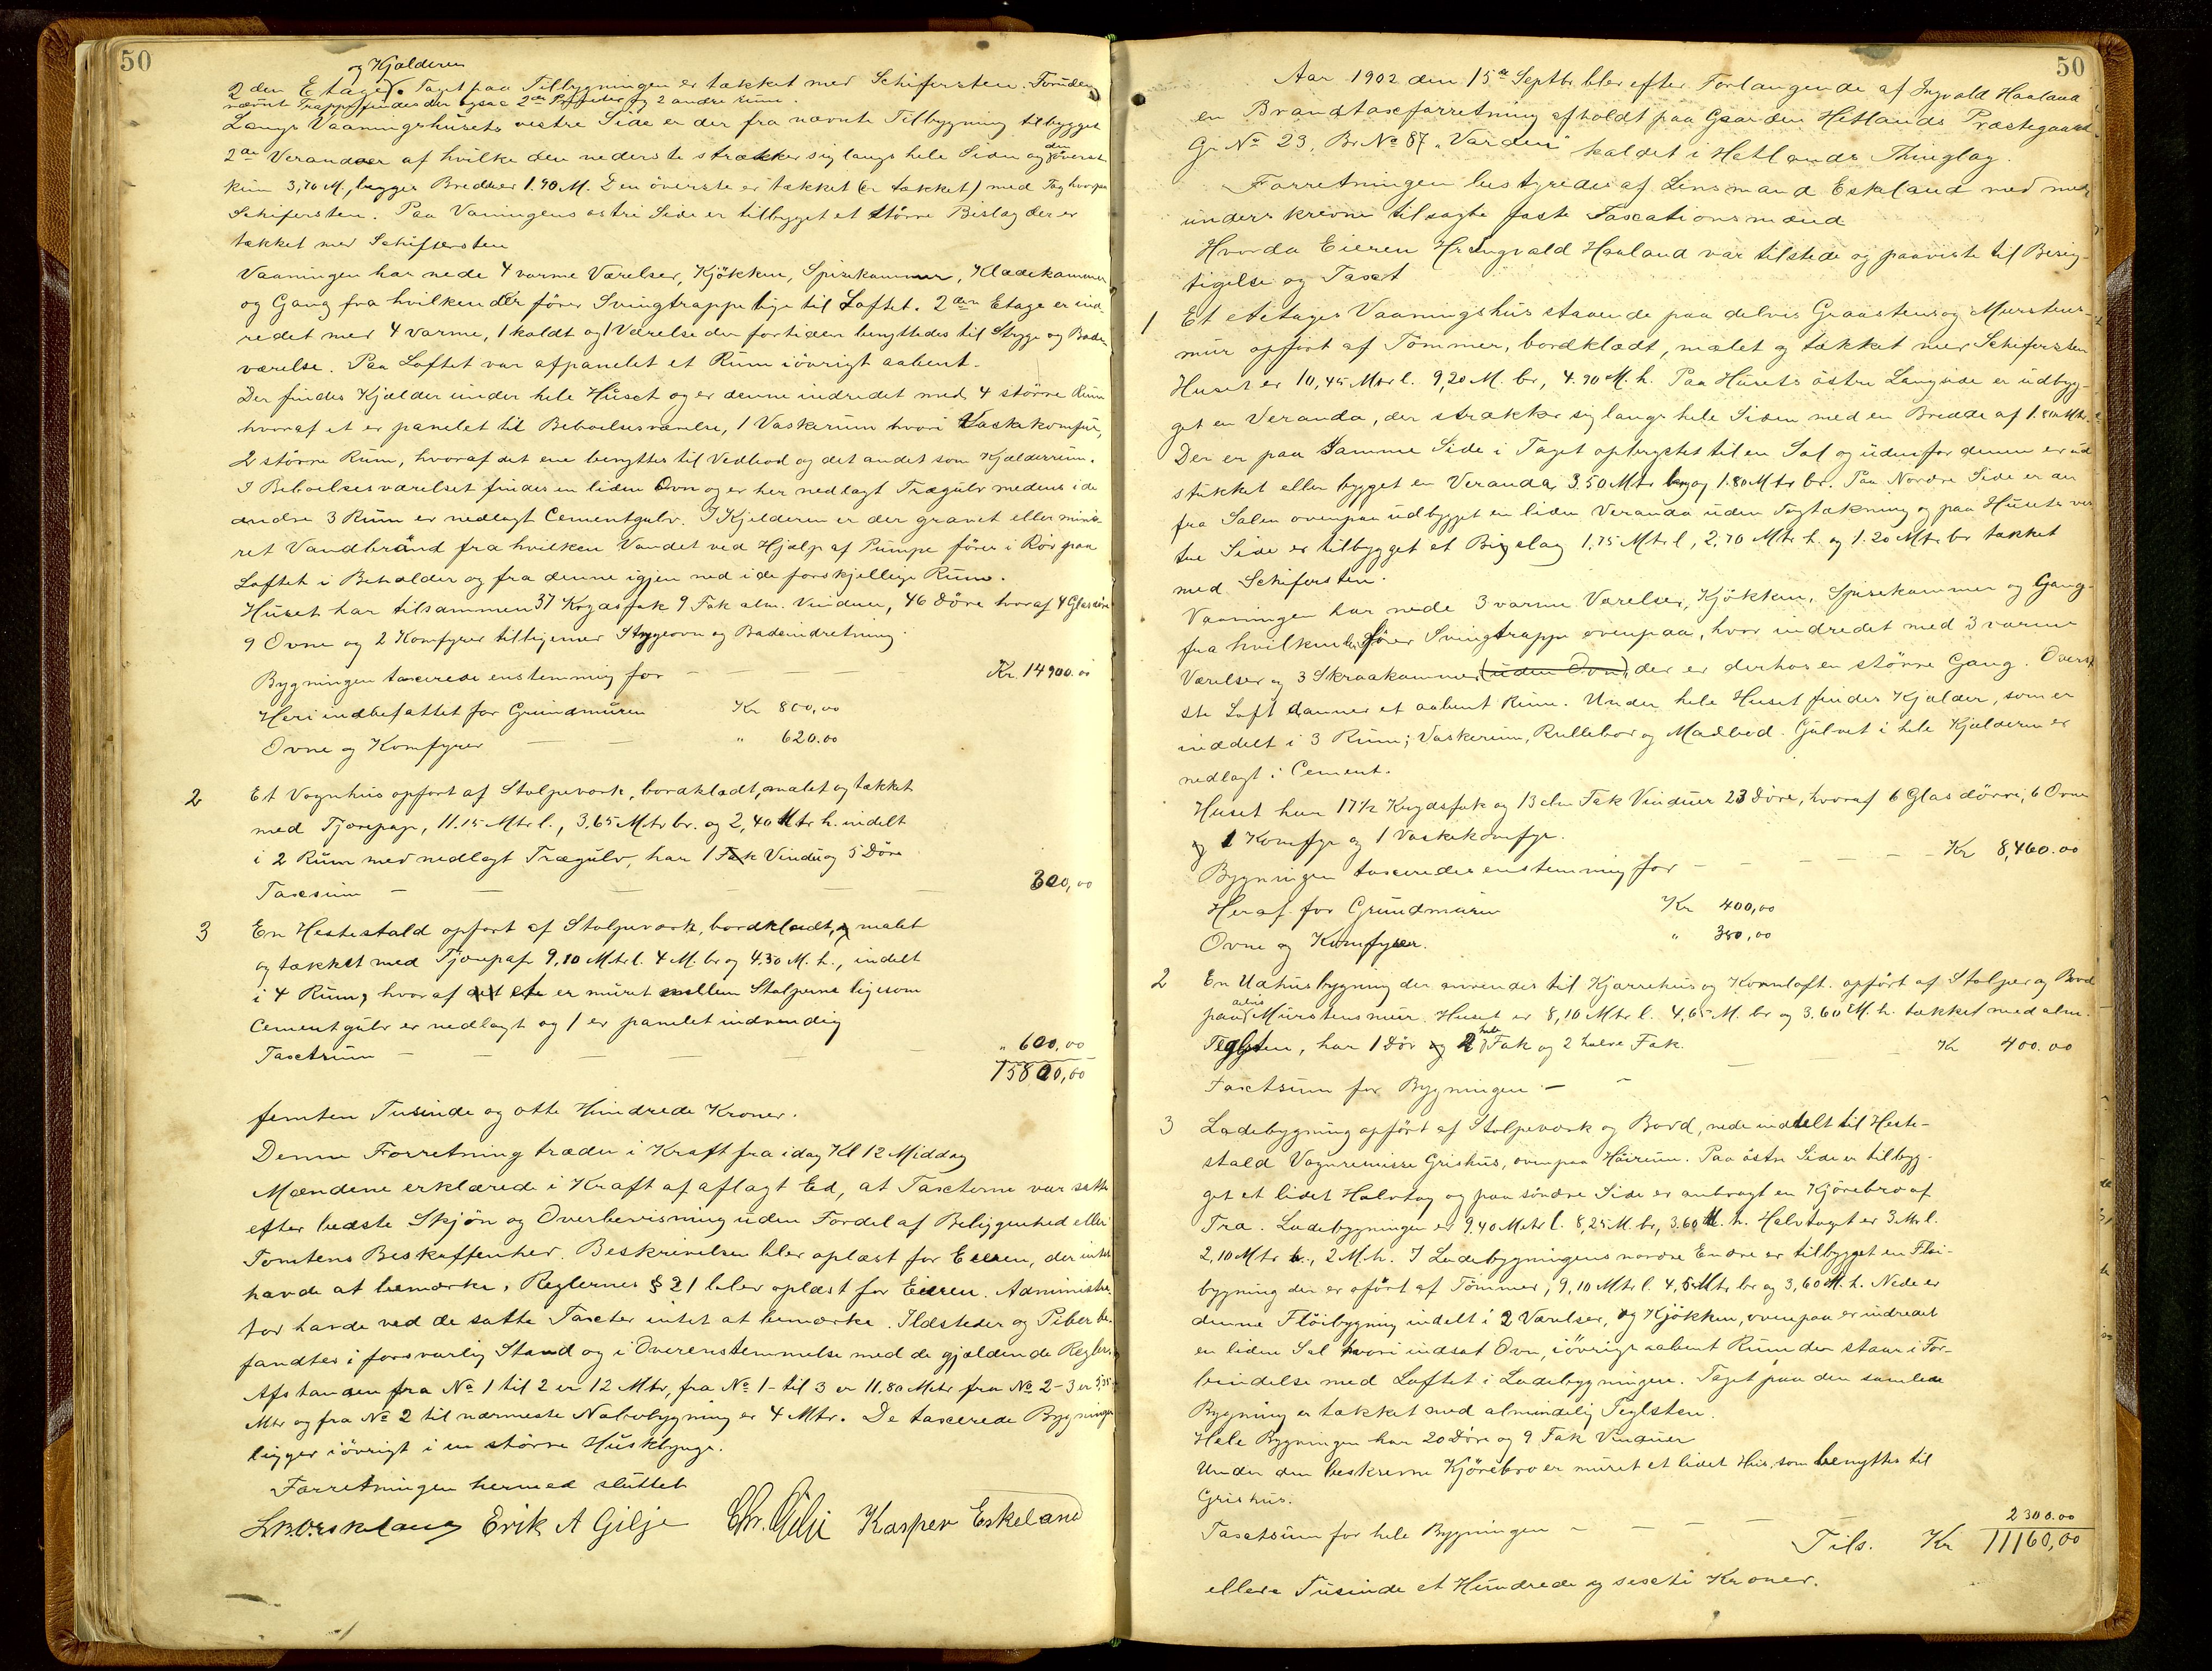 50
og Kjælderen
2den Etage. Taget paa Tilbygningen er tækket med Schifersten. Foruden
nævnte Trappe findes der ogsaa 2de og 2 andre Rum.
Langs Vaaningshusets vestre Side er der fra nævnte Tilbygning tilbygget
2de Verandaer af hvilke den nederste strækker sig langs hele Siden og den øverste
kun 3,70 M., begges Bredder 1.90 M. Den øverste er tækket (er tækket) med Tag hvorpaa
Schifersten. Paa Vaningens østre Side er tilbygget et større Bislag der er
tækket med Schifersten
Vaaningen har nede 4 varme Værelser, Kjøkken, Spisekammer, Klædekammer
og Gang fra hvilken der fører Svingtrappe lige til Loftet. 2den Etage er ind-
redet med 4 varme, 1 koldt og 1 Værelse der for tiden benyttedes til Stryge og Bade-
værelse. Paa Loftet var afpanelet et Rum iøvrigt aabent.
Der findes Kjælder under hele Huset og er denne indredet med 4 større Rum
hvoraf et er panelet til Beboelsesværelse, 1 Vaskerum hvori Vaskekomfur,
2 større Rum, hvoraf det ene benyttes til Vedbod og det andet som Kjælderrum.
I Beboelsesværelset findes en liden Ovn og er her nedlagt Trægulv medens i de
andre 3 Rum er nedlagt Cementgulv. I Kjelderen er der gravet eller mine-
ret Vandbrønd fra hvilken Vandet ved Hjælp af Pumpe føres i Rør paa
Loftet i Beholder og fra denne igjen ned i de forskjellige Rum.
Huset har tilsammen 37 Krydsfak 9 Fak alm. Vinduer, 46 Døre hvoraf 4 Glasdøre
9 Ovne og 2 Komfyrer tilligemed Strygeovn og Badeindretning.
Bygningen taxerede enstemmig for — — — Kr. 14900.00
Heri indbefattet for Grundmuren Kr 800,00
Ovne og Komfyrer — — " 620.00
2 Et Vognhus opført af Stolpeverk, bordklædt, malet og tækket
med Tjærepap, 11.15 Mtr l., 3,65 Mtr br. og 2,40 Mtr h. indelt
i 2 Rum med nedlagt Trægulv, har 1 Fak Vindu og 5 Døre
Taxsum — — — — — 300,00
3 En Hestestald opført af Stolpeverk, bordklædt, og malet
og tækket med Tjærepap 9,10 Mtr l. 4 M. br og 4.30 M. h., indelt
i 4 Rum, hvoraf det ete er muret mellem Stolperne ligesom
Cementgulv er nedlagt og 1 er panelet indvendig
Taxtsum — — — " 600,00
15800,00
femten Tusinde og otte Hundrede Kroner.
Denne Forretning træder i Kraft fra idag Kl 12 Middag
Mændene erklærede i Kraft af aflagt Ed, at Taxterne var satte
efter bedste Skjøn og Overbevisning uden Fordel af Beliggenhed eller
Tomtens Beskaffenhed. Beskrivelsen blev oplæst for Eieren, der intet
havde at bemærke. Reglernes § 21 blev oplæst for Eieren. Administra-
tor havde ved de satte Taxter intet at bemærke. Ildsteder og Piber be-
fandtes i forsvarlig Stand og i Overenstemmelse med de gjældende Regler.
Afstanden fra No 1 til 2 er 12 Mtr, fra No 1 - til 3 er 11.80 Metr fra No 2-3 er 5,35
Mtr og fra No 2 til nærmeste Nabobygning er 4 Mtr. De taxerede Bygninger
ligger iøvrigt i en større Husklynge.
Forretningen hermed sluttet
Erik A Gilje Chr. Gilje Kasper Eskeland
50
Aar 1902 den 15de Septbr blev efter Forlangende af Ingvald Haaland
en Brandtaxforretning afholdt paa Gaarden Hetlands Præstegaard
Gr No 23, Br No 87 "Varden" kaldet i Hetlands Thinglag.
Forretningen bestyredes af Linsmand Eskeland med med
underskrevne tilsagte faste Taxationsmænd
Hvorda Eieren Hr Ingvald Haaland var tilstede og paaviste til Besig-
tigelse og Taxt
1 Et etetages Vaaningshus staaende paa delvis Graastens og Murstens-
mur opført af Tømmer, bordklædt, malet og tækket med Schifersten
Huset er 10,45 Mtr l. 9,20 M. br, 4.90 M. h. Paa Husets østre Langside er udbyg-
get en Veranda, der strækker sig langs hele Siden med en Bredde af 1.80 Mtr.
Der er paa samme Side i Taget opbrystet til en Sal og udenfor denne er ud-
stukket eller bygget en Veranda 3.50 Mtr lg og 1.80 Mtr br. Paa Nordre Side er der
fra Salen ovenpaa udbygget en liden Veranda uden Tagtækning og paa Husets ves-
tre Side er tilbygget et Bigslag 1,75 Mtr l, 2,70 Mtr h. og 1.20 Mtr br tækket
med Schifersten.
Vaaningen har nede 3 varme Værelser, Kjøkken, Spisekammer og Gang
fra hvilken der fører Svingtrappe ovenpaa, hvor indredet med 3 varme
Værelser og 3 Skraakammer (uden Ovn) der er derhos en større Gang. Øver-
ste Loft danner et aabent Rum. Under hele Huset findes Kjælder, som er
inddelt i 3 Rum; Vaskerum, Rullebod og Madbod. Gulvet i hele Kjælderen er
nedlagt i Cement.
Huset har 17½ Krydsfak og 13 alm Fak Vinduer 23 Døre, hvoraf 6 Glasdørre, 6 Ovne
og 1 Komfyr og 1 Vaskekomfyr.
Bygningen taxeredes enstemmig for — — — — Kr 8,460.00
Heraf for Grundmuren Kr 400,00
Ovne og Komfyrer. " 380,00
2 En Udhusbygning der anvendes til Kjærrehus og Kornloft. opført af Stolper og Bord
paa delvis Murstensmur. Huset er 8,10 Mtr l. 4,65 M. br og 3.60 M. h. tækket med alm.
Teglsten, har 1 Dør og 2 hele Fak og 2 halve Fak.
Taxtsum for Bygningen — — — — Kr 400.00
3 Ladebygning opført af Stolpeværk og Bord, nede inddelt til Heste-
stald Vognremisse Grishus, ovenpaa Høirum. Paa østre Side er tilbyg-
get et lidet Halvtag og paa søndre Side er anbragt en Kjørebro af
Træ. Ladebygningen er 9.40 Metr l. 8,25 M. br, 3.60 M. h. Halvtaget er 3 Mtr l.
2,10 Mtr b., 2 M. h. I Ladebygningens nordre Ende er tilbygget en Fløi-
bygning der er oført af Tømmer, 9,10 Mtr l. 4,5 Mtr br og 3,60 M. h. Nede er
denne Fløibygning indelt i 2 Værelser, og Kjøkken, ovenpaa er indredet
en liden Sal hvori indsat Ovn, iøvrigt aabent Rum der staar i For-
bindelse med Loftet i Ladebygningen. Taget paa den samlede
Bygning er tækket med almindelig Teglsten.
Hele Bygningen har 20 Døre og 9 Fak Vinduer
Under den beskrevne Kjørebro er muret et lidet Hus, som benyttes til
Grishus.
Taxtsum for hele Bygningen — — — — 2300.00
Tils. Kr 11160,00
elleve Tusinde et Hundrede og sexti Kroner.